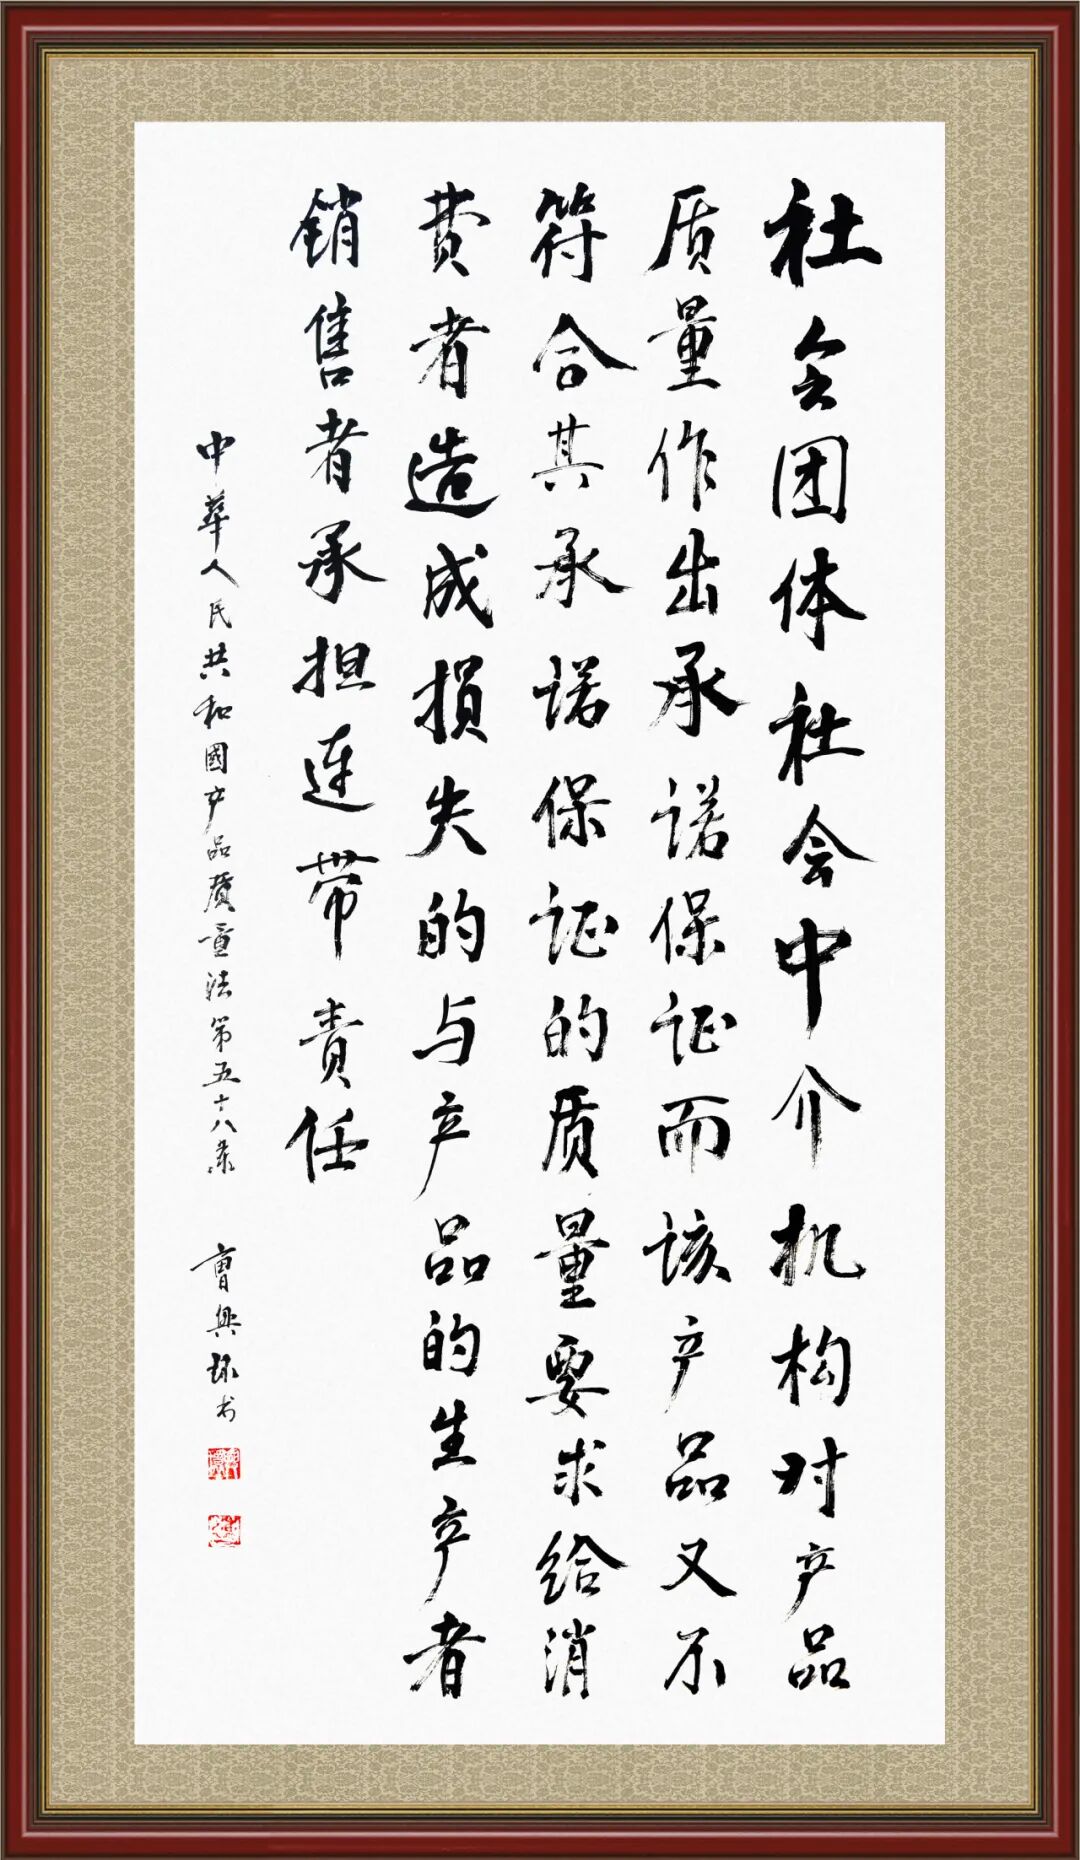 社会团体社会中介机构对产品
质量作出承诺保证而该产品又不
符合其承诺保证的质量要求给消
费者造成损失的与产品的生产者
銷售者承担连带责任
中华人民共和國产品质量法第五十八条
曹興球书